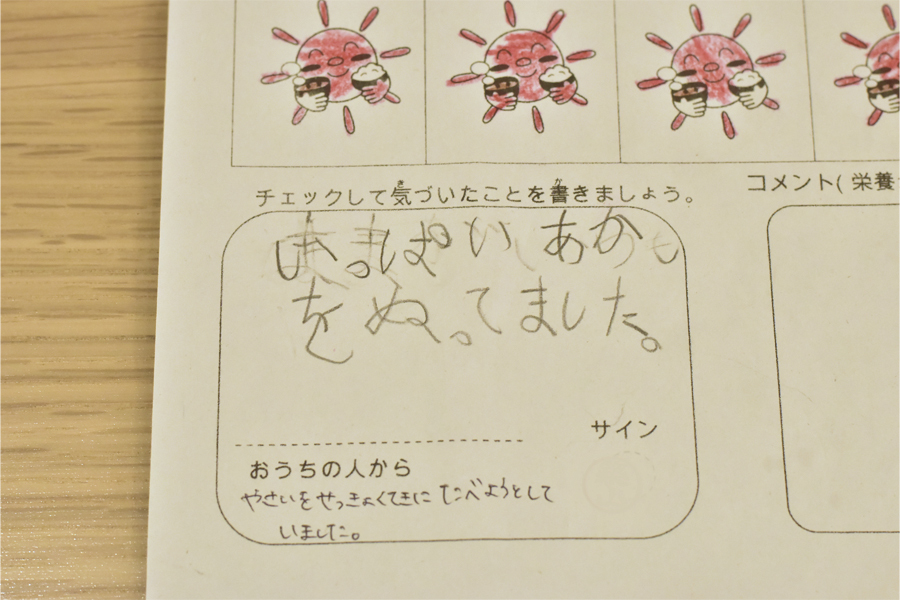 チェックして気づいたことを書きましょう。
コメント(栄養
はっぱい あか
をぬってました。
サイン
おうちの人から
やさいをせっきょくてきにたべようとして
いました。